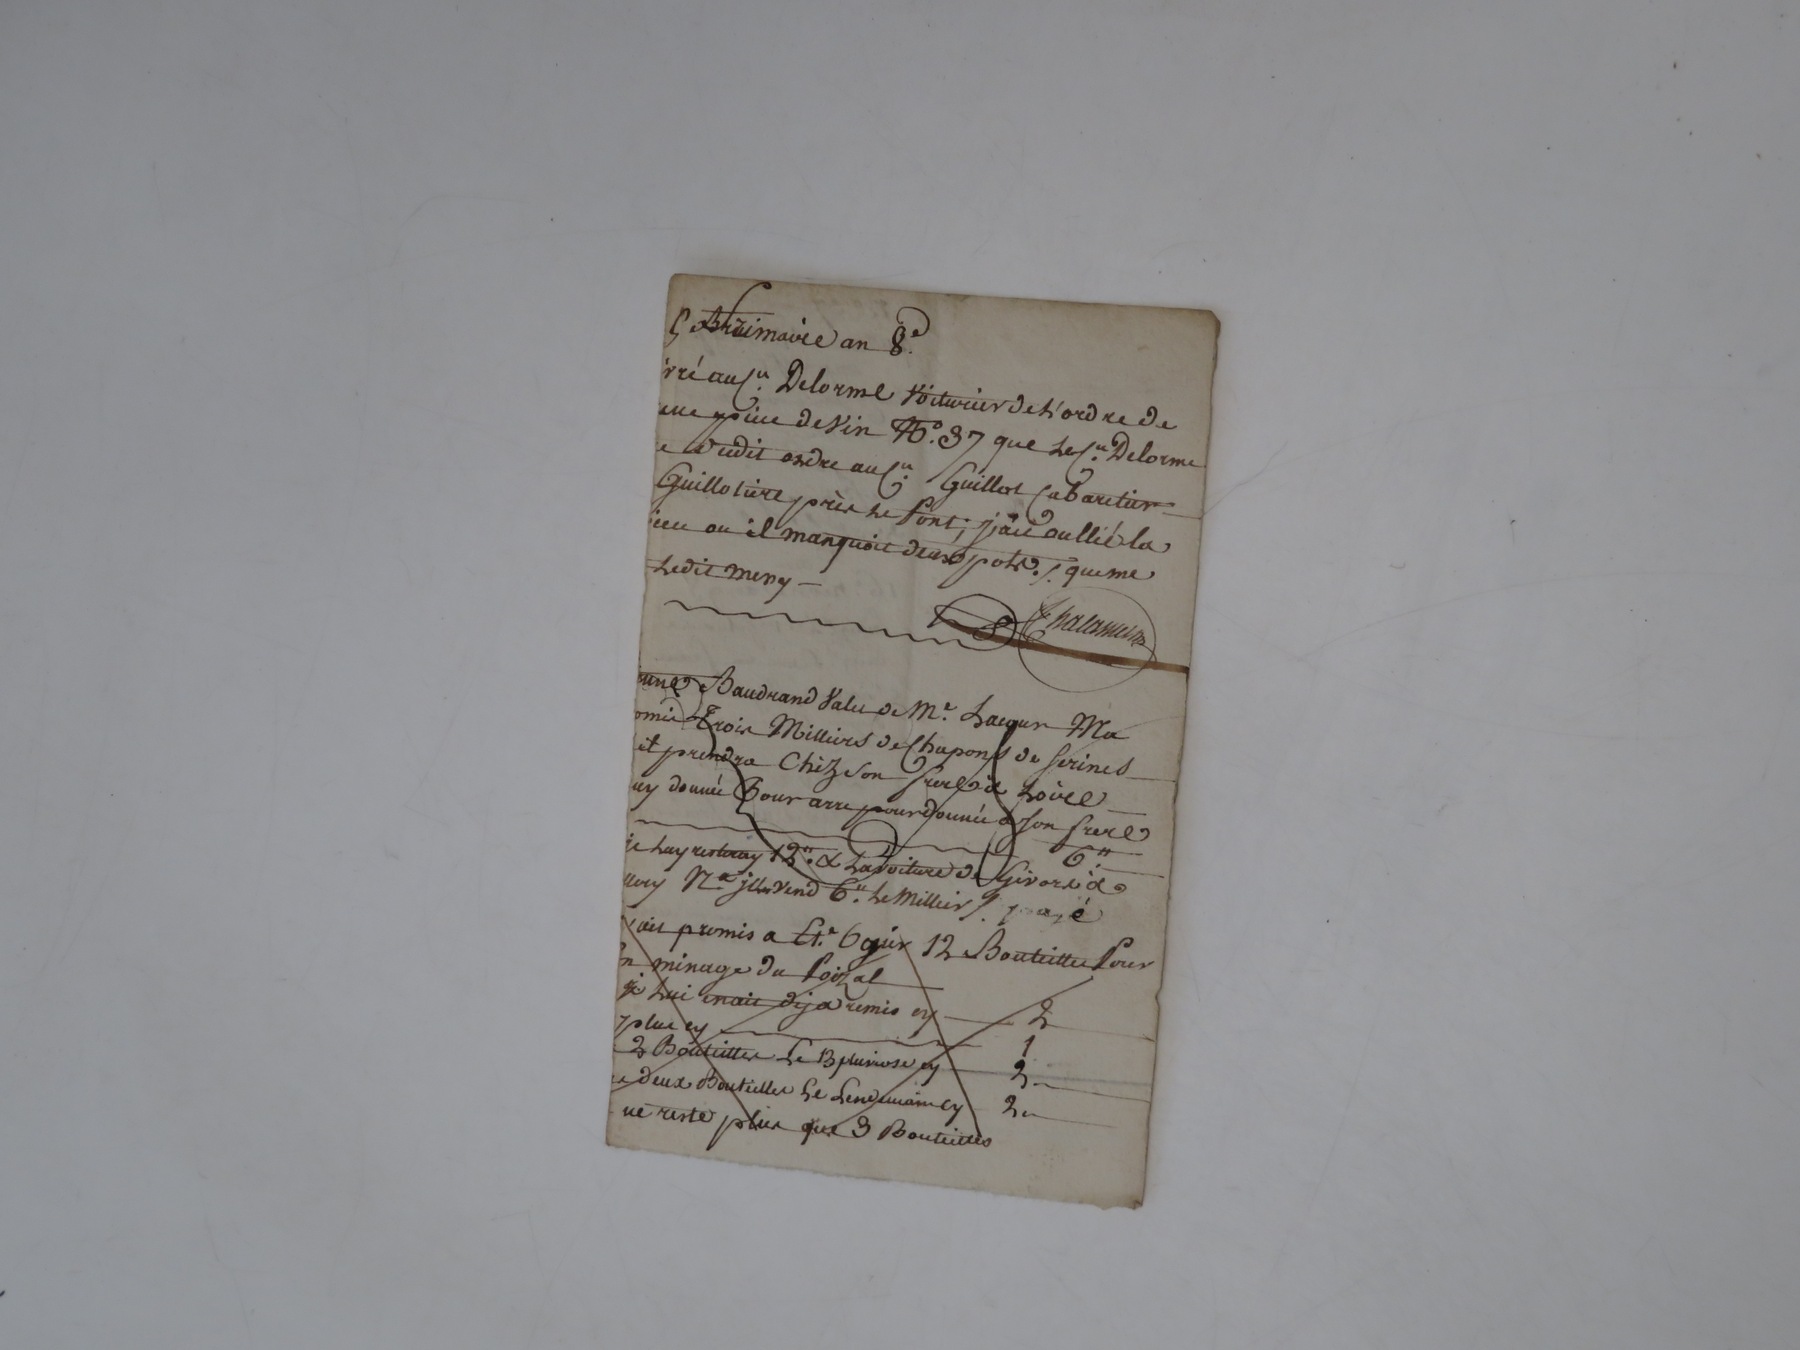 Brumaire an 8.e
vré au C.n Delorme Voiturier de L'ordre de
une piece de Vin N.o 37 que Le C.n Delorme
dudit ordre au C.n Guillot Cabaretier
Guillotiere près Le Pont; j'ai oullié la
ou il manquoit deux pots. que me
Ledit meny
Thalamein
Baudrand Valet de M.r Lacour Ma
Trois Milliers de Chapons de Serines
prendra Chéz Son frere à Loire
donné Pour arre pour donné a Son frere
6.#
12.# & La voiture de Givors à
N.a vend 6.# Le Millier payé
ait promis a 12 Bouteilles Pour
minage du Poizat
Lui avait déja remis cy 2
plus cy 1
2 Bouteilles Le 13 pluviose cy 2
deux Bouteilles Le Lendemain cy 2
ne reste plus que 3 Bouteilles